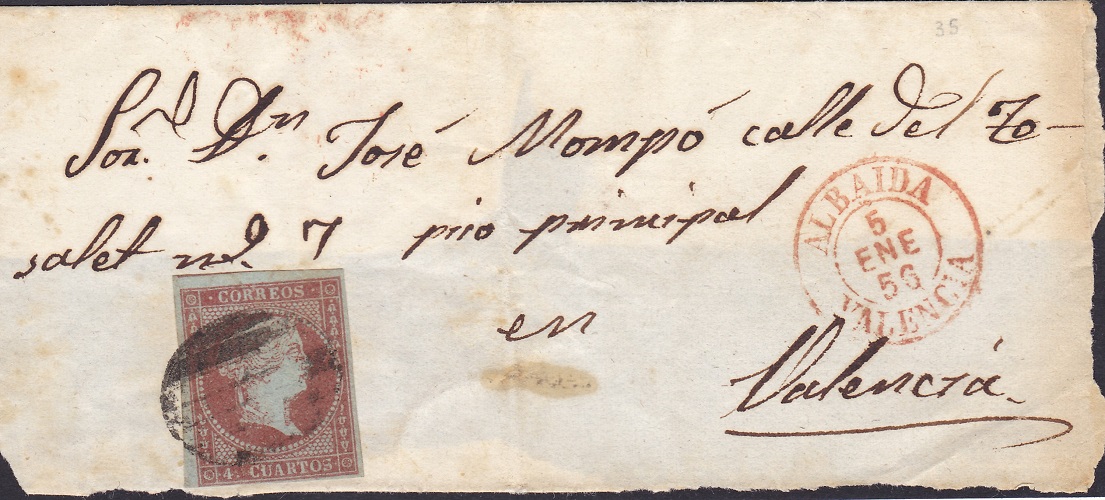 35
Sor. Dn. José Mompó calle del To-
salet no. 7 piso principal
en
Valencia.
ALBAIDA
5
ENE
56
VALENCIA
CORREOS
4 CUARTOS